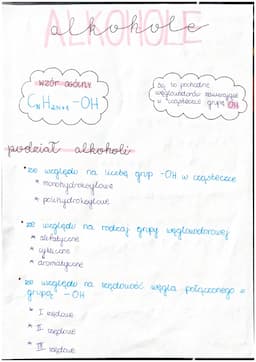 ALKOHOLE
alkohole
wzór ogólny
CnH2n+1-OH
są to pochodne
węglowodorów zawierające
w cząsteczce grupę OH
podział alkoholi
• ze względu na liczbę grup -OH w cząsteczce
* monohydroksylowe
* polihydroksylowe
• ze względu na rodzaj grupy węglowodorowej
* alifatyczne
* cykliczne
* aromatyczne
• ze względu na rzędowość węgla połączonego z
grupą -OH
* I rzędowe
* II rzędowe
* III rzędowe